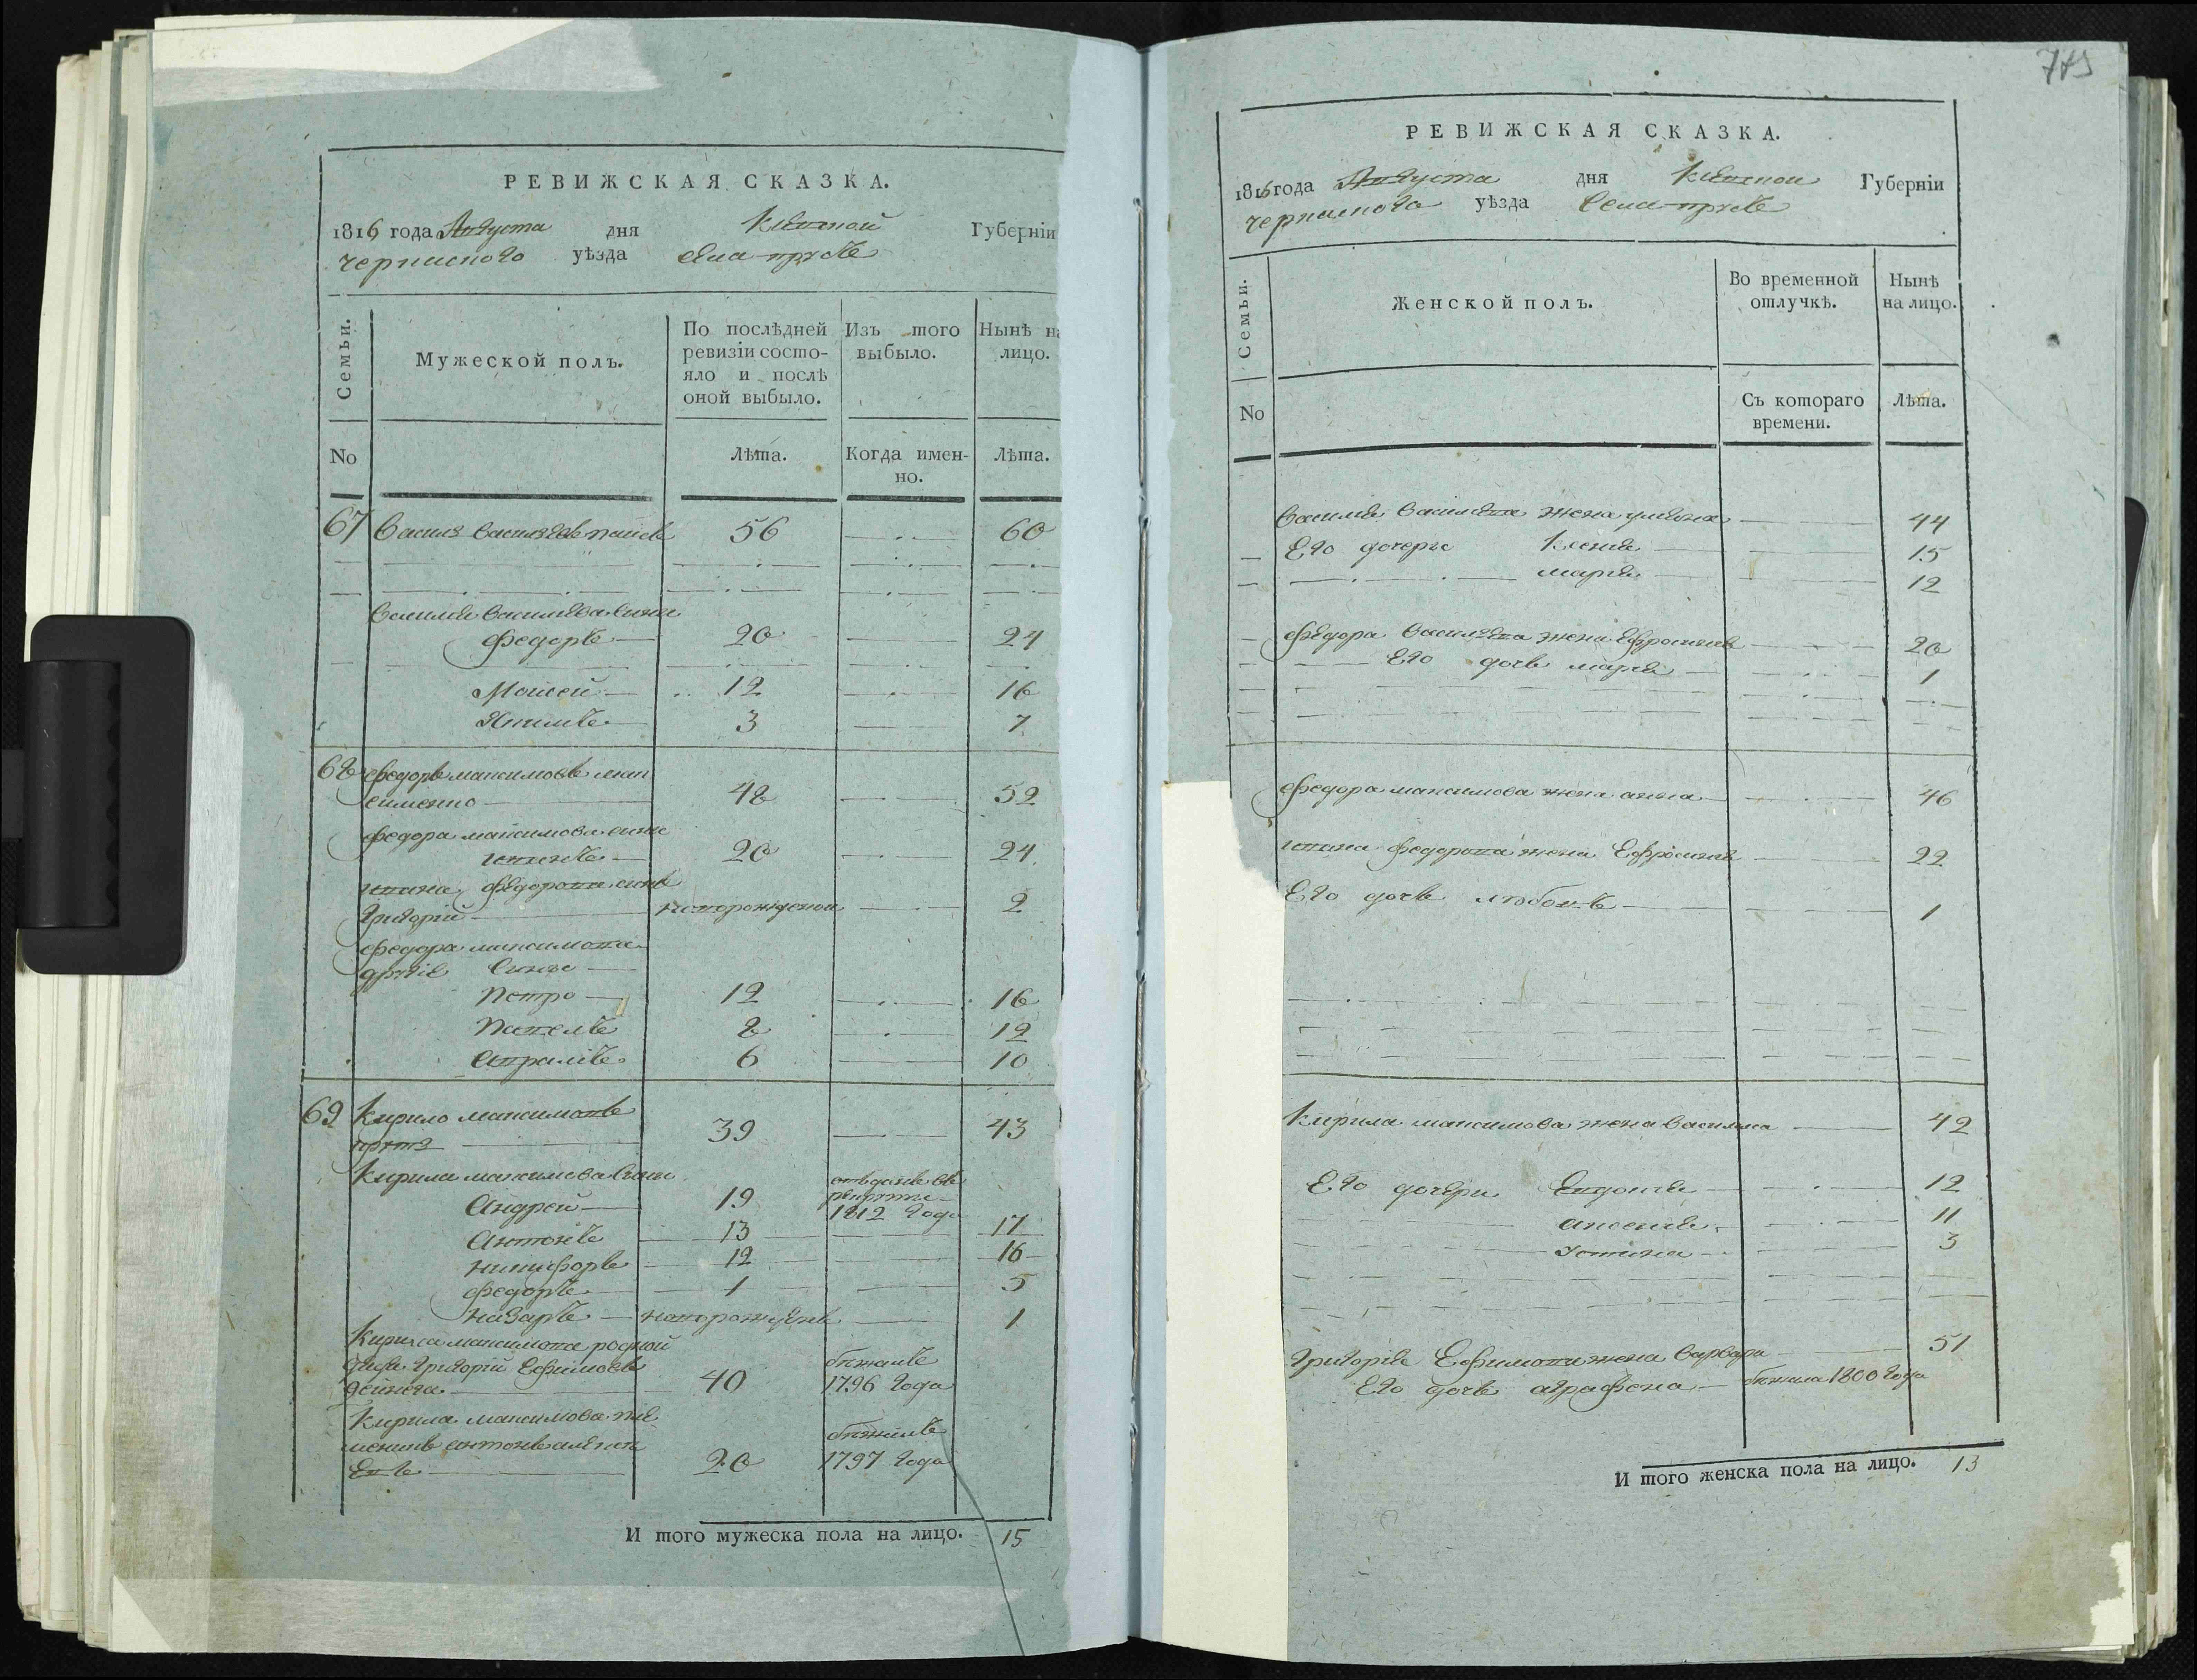 РЕВИЖСКАЯ СКАЗКА.
1816 года Августа дня Кіевской Губерніи
черкаскаго уѣзда села
Семьи.
Мужеской полъ.
По послѣдней ревизіи состо-
яло и послѣ
оной выбыло.
Изъ того
выбыло.
Нынѣ на
лицо.
No
Лѣта.
Когда имен-
но.
Лѣта.
67 Василь Васильевъ 56 60
Василія Василіева сини
Федоръ 20 24
Моисей 12 16
Якимъ 3 7
68 Федоръ максимовъ
48 52
Федора максимова сини
иванъ 20 24
ивана Федорова синъ
Григорій новорожденой 2
Федора максимова
другіе Сины
Петро 12 16
Павелъ 8 12
Аврамъ 6 10
69 Кирило максимовъ
39 43
Кирила максимова Сини
Андрей 19 отъданъ въ рекруты 1812 Года
Антонъ 13 17
никифоръ 12 16
Федоръ 1 5
назаръ новорожденъ 1
Кирила максимова родной
дядя Григорій Ефимовъ
40 бѣжалъ 1796 Года
Кирила максимова пле
меникъ антонъ алексѣ
евъ 20 бѣжалъ 1797 Года
И того мужеска пола на лицо. 15
775
РЕВИЖСКАЯ СКАЗКА.
1816 года Августа дня Кіевской Губерніи
черкаскаго уѣзда Села
Семьи.
Женской полъ.
Во временной
отлучкѣ.
Нынѣ
на лицо.
No
Съ котораго
времени.
Лѣта.
Василія Василіева жена уліяна 44
Его дочеры Ксенія 15
марія 12
Федора Василіева жена Ефросинія 20
Его дочь марія 1
Федора максимова жена анна 46
ивана Федорова жена Ефросинія 22
Его дочь любовъ 1
Кирила максимова жена василиса 42
Его дочери Евдокія 12
аксенія 11
Устина 3
Григорія Ефимова жена варвара 51
Его дочь аграфена бѣжала 1800 Года
И того женска пола на лицо. 13